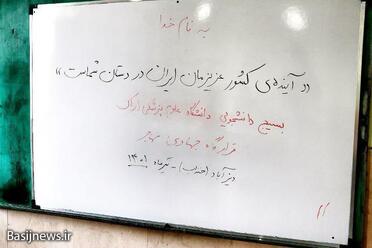 به نام خدا
«آینده‌ی کشور عزیزمان ایران در دستان شماست»
بسیج دانشجویی دانشگاه علوم پزشکی اراک
قرارگاه جهادی مهاجر
دیزآباد (خنداب) - تیرماه ۱۴۰۱
Basijnews.ir